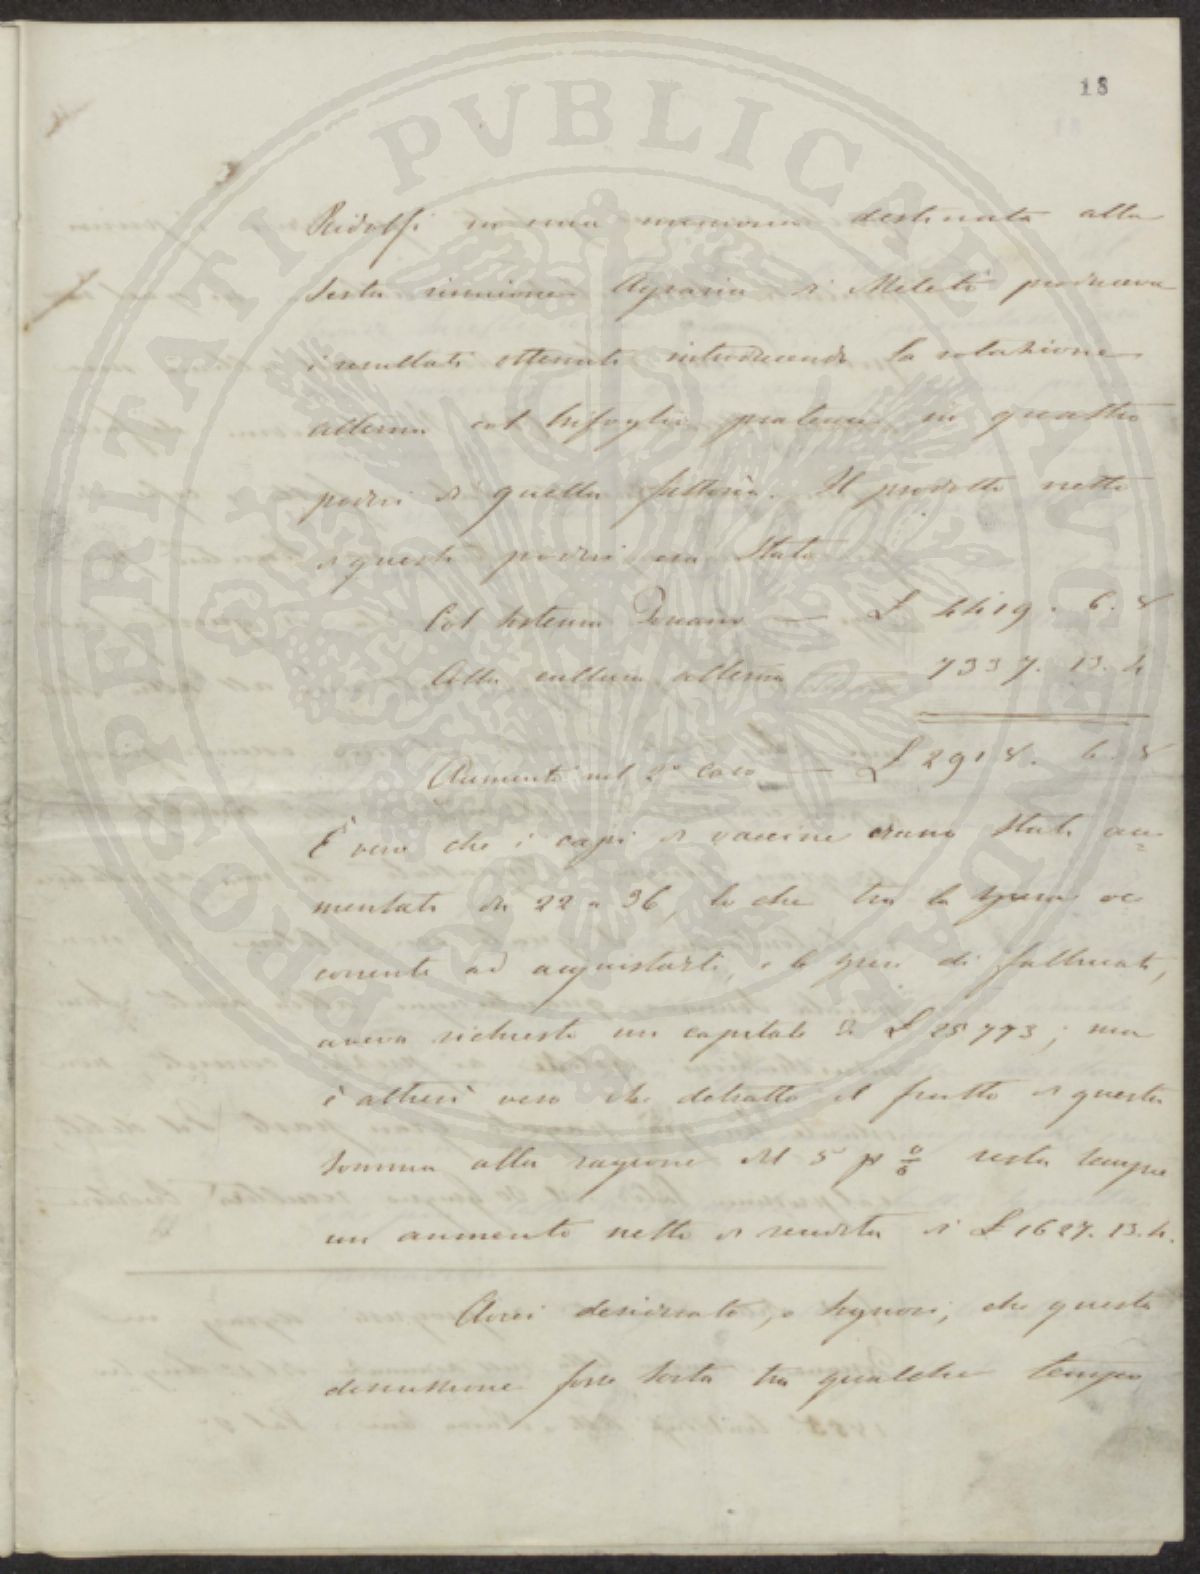 18
Ridolfi in una memoria destinata alla
sesta riunione Agraria di Meleto produceva
i resultati ottenuti introducendo la rotazione
alterna col trifoglio pratense in quattro
poderi di quella fattoria. Il prodotto netto
di questi poderi era stato
Col sistema Toscano — £ 4419. 6. 8
Colla cultura alterna — 7337. 13. 4
Aumento nel 2º Caso — £ 2918. 6. 8
È vero che i capi di vaccine erano stati au=
mentati da 22 a 36, lo che tra la spesa oc
corrente ad acquistarli, e le spese di fabbricati,
aveva richiesto un capitale di £ 25773; ma
è altresì vero che detratto il frutto di questa
somma alla ragione del 5 p % resta sempre
un aumento netto di rendita di £ 1627. 13. 4.
Avrei desiderato, o Signori, che questa
discussione fosse sorta tra qualche tempo
PROSPERITATI PVBLICAE AVGENDAE